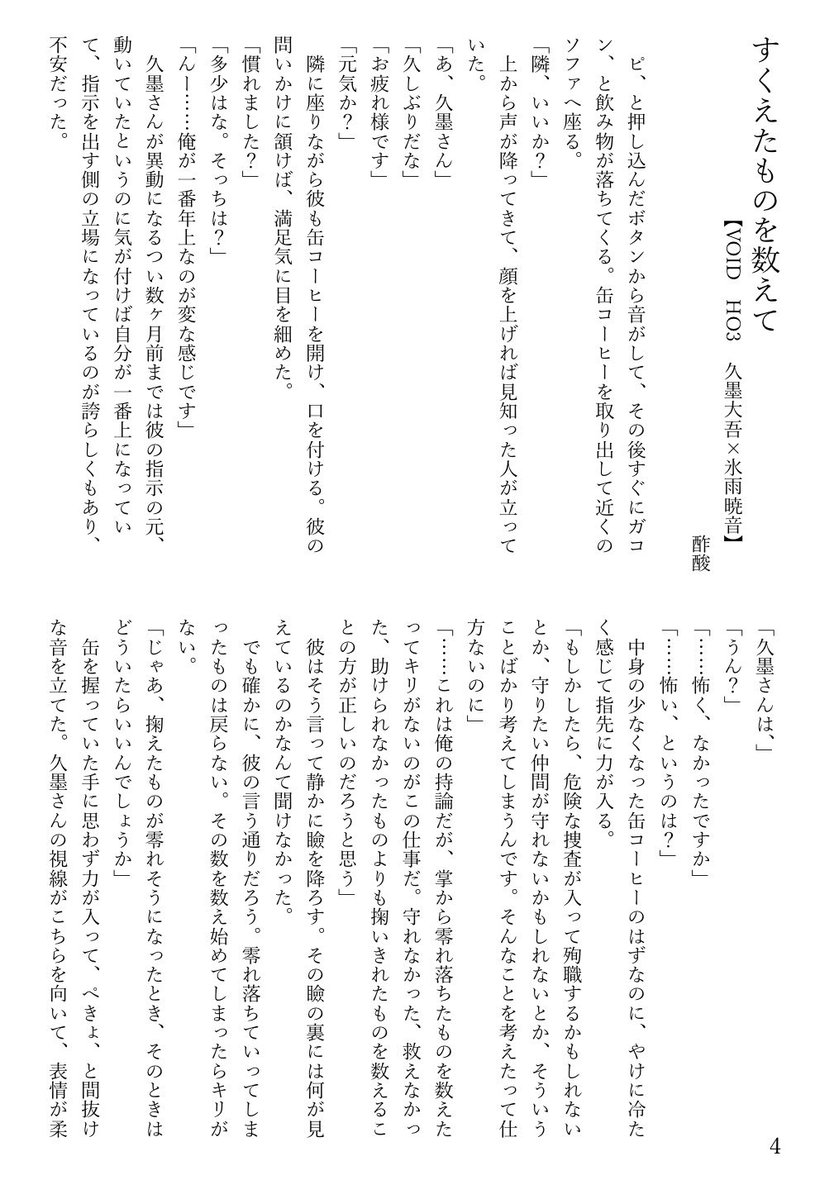 すくえたものを数えて
【VOID　HO3　久墨大吾×氷雨暁音】
酢酸
　ピ、と押し込んだボタンから音がして、その後すぐにガコ
ン、と飲み物が落ちてくる。缶コーヒーを取り出して近くの
ソファへ座る。
「隣、いいか？」
　上から声が降ってきて、顔を上げれば見知った人が立って
いた。
「あ、久墨さん」
「久しぶりだな」
「お疲れ様です」
「元気か？」
　隣に座りながら彼も缶コーヒーを開け、口を付ける。彼の
問いかけに頷けば、満足気に目を細めた。
「慣れました？」
「多少はな。そっちは？」
「んー……俺が一番年上なのが変な感じです」
　久墨さんが異動になるつい数ヶ月前までは彼の指示の元、
動いていたというのに気が付けば自分が一番上になってい
て、指示を出す側の立場になっているのが誇らしくもあり、
不安だった。
「久墨さんは、」
「うん？」
「……怖く、なかったですか」
「……怖い、というのは？」
　中身の少なくなった缶コーヒーのはずなのに、やけに冷た
く感じて指先に力が入る。
「もしかしたら、危険な捜査が入って殉職するかもしれない
とか、守りたい仲間が守れないかもしれないとか、そういう
ことばかり考えてしまうんです。そんなことを考えたって仕
方ないのに」
「……これは俺の持論だが、掌から零れ落ちたものを数えた
ってキリがないのがこの仕事だ。守れなかった、救えなかっ
た、助けられなかったものよりも掬いきれたものを数えるこ
との方が正しいのだろうと思う」
　彼はそう言って静かに瞼を降ろす。その瞼の裏には何が見
えているのかなんて聞けなかった。
　でも確かに、彼の言う通りだろう。零れ落ちていってしま
ったものは戻らない。その数を数え始めてしまったらキリが
ない。
「じゃあ、掬えたものが零れそうになったとき、そのときは
どういたらいいんでしょうか」
　缶を握っていた手に思わず力が入って、ぺきょ、と間抜け
な音を立てた。久墨さんの視線がこちらを向いて、表情が柔
4